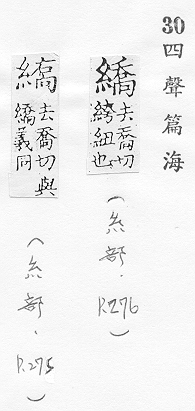 30 四聲篇海
繑 去喬切
絝紐也
（糸部．P.276）
去喬切與
繑義同
（糸部．P.275）